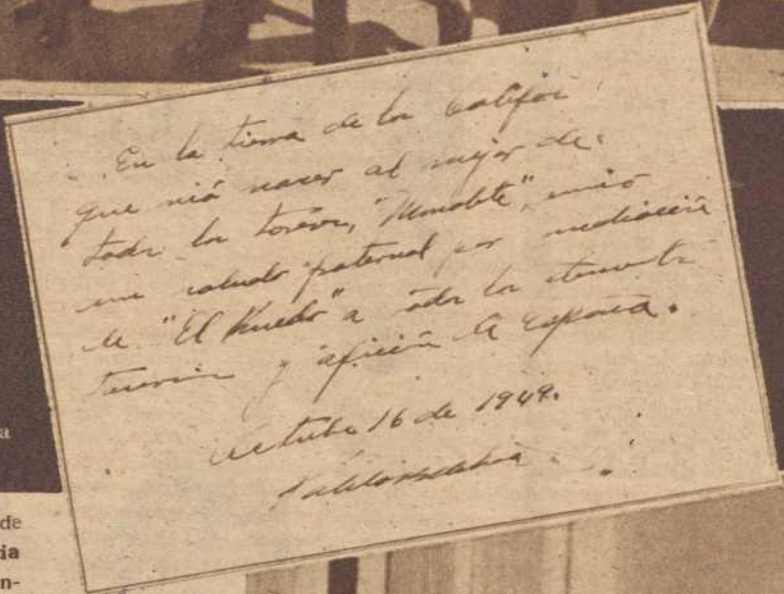 En la tierra de los Califas
que vió nacer al mejor de
todos los toreros, "Manolete", envio
un saludo paternal por mediación
de "El Ruedo" a todos los elementos
taurinos y afición de España.
Octubre 16 de 1949.
a
de
ia
n-